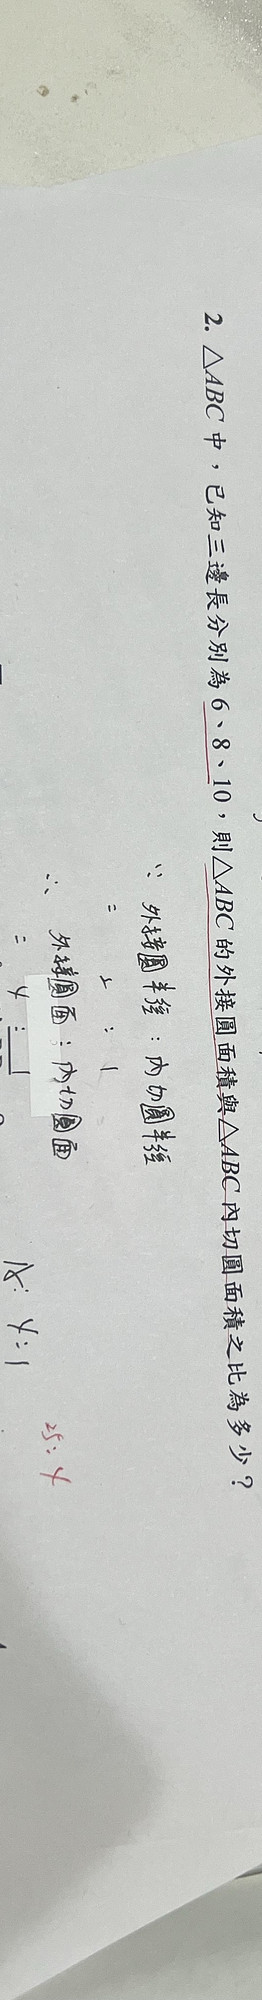 2. △ABC 中，已知三邊長分別為 6、8、10，則△ABC 的外接圓面積與△ABC 內切圓面積之比為多少？
∵ 外接圓半徑：內切圓半徑
= 2 : 1
∴ 外接圓面：內切圓面
= 4 : 1
A: 4:1
25:4